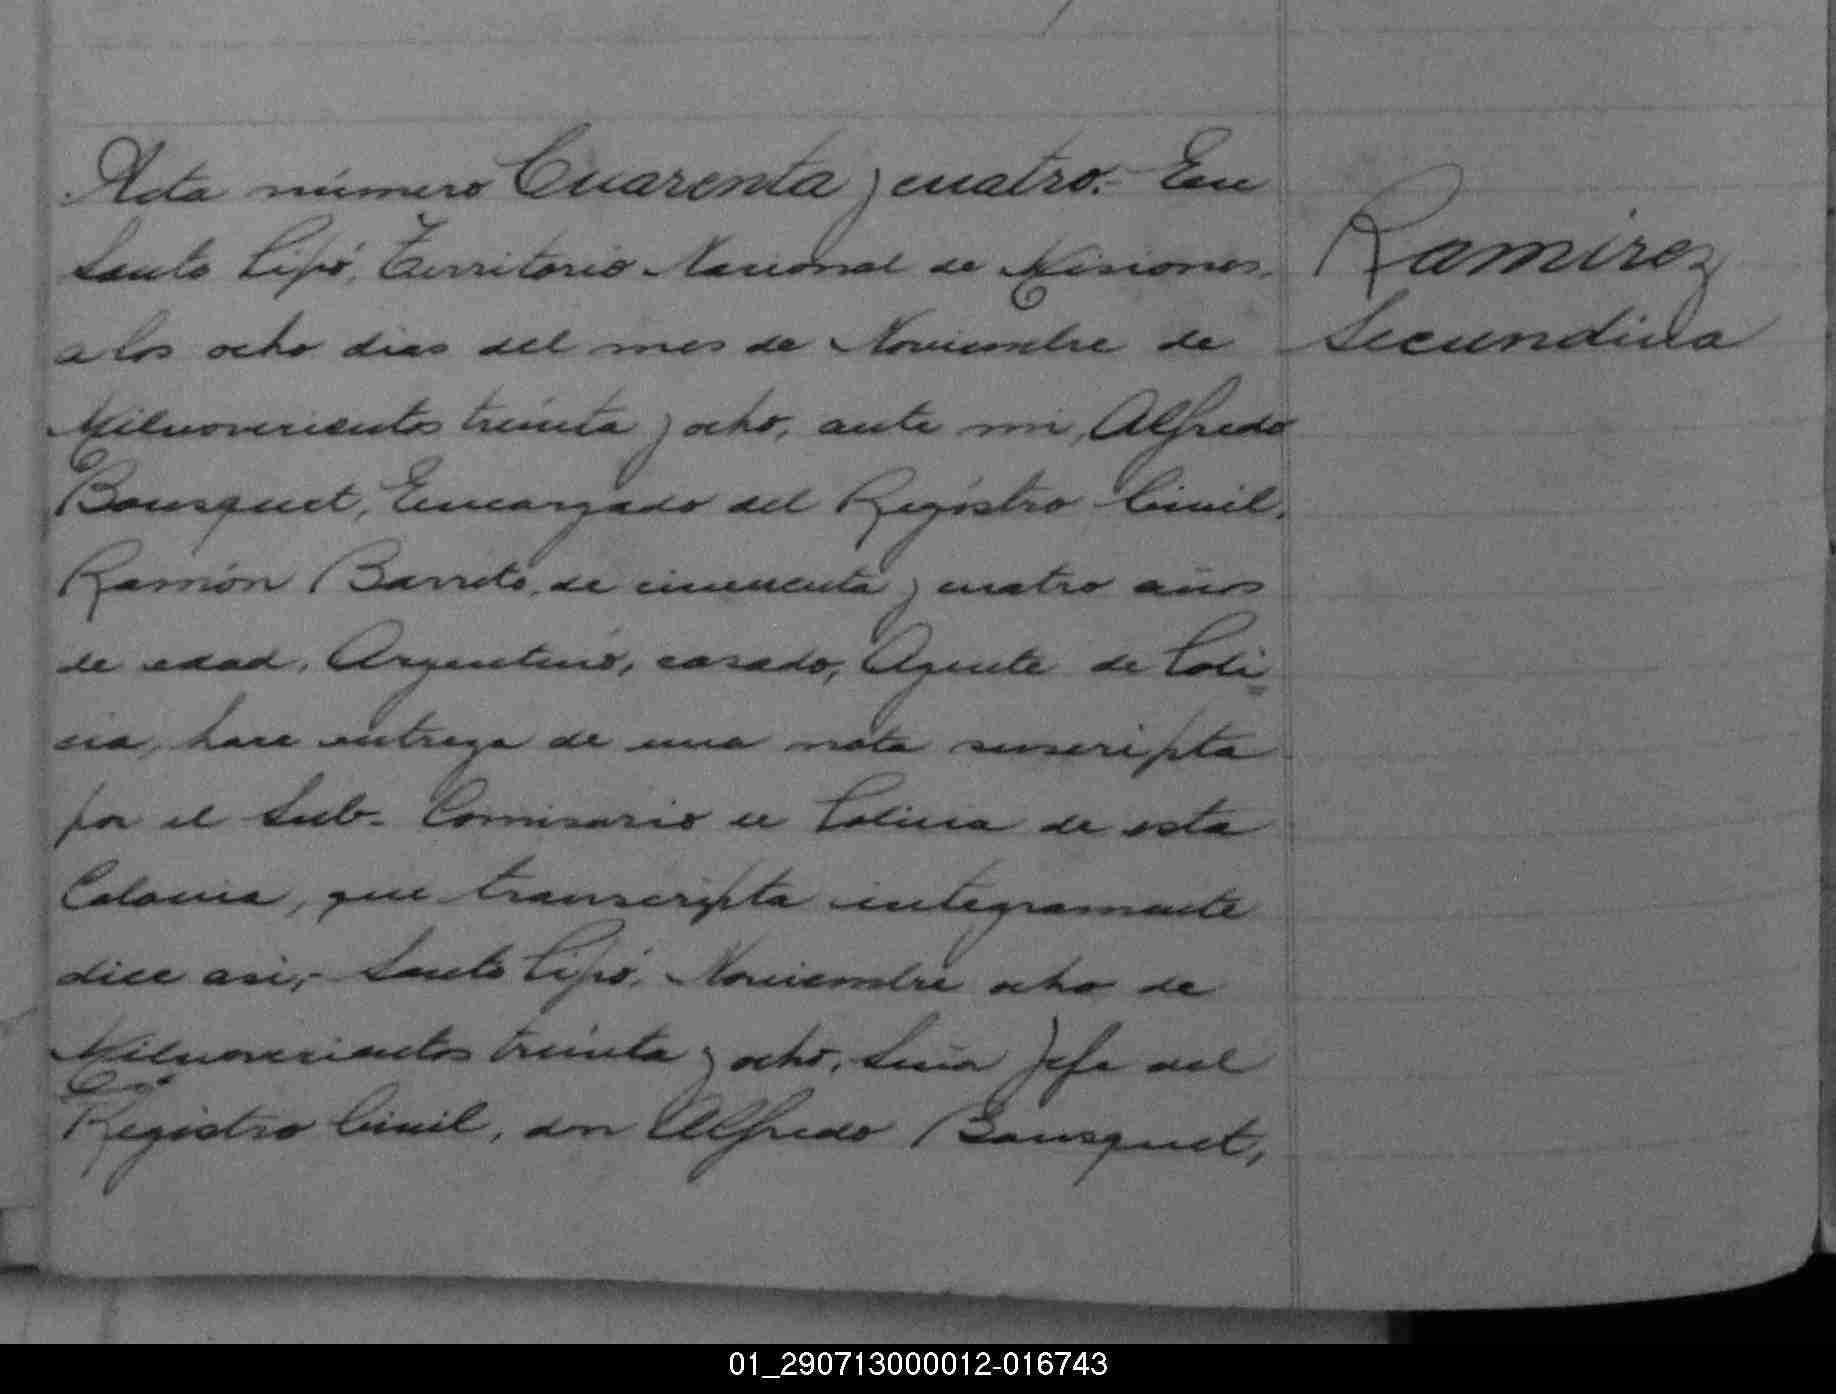 Acta número Cuarenta y cuatro.- En
Santo Pipó, Territorio Nacional de Misiones,
a los ocho dias del mes de Noviembre de
Milnovecientos treinta y ocho, ante mi, Alfredo
Bousquet, Encargado del Registro Civil,
Ramón Barreto, de cincuenta y cuatro años
de edad, Argentino, casado, Agente de Poli
cia, hace entrega de una nota suscripta
por el Sub-Comisario de Policia de esta
Colonia, que transcripta integramente
dice asi,- Santo Pipó, Noviembre ocho de
Milnovecientos treinta y ocho, Señor Jefe del
Registro Civil, don Alfredo Bousquet,
Ramirez
Secundina
01_290713000012-016743